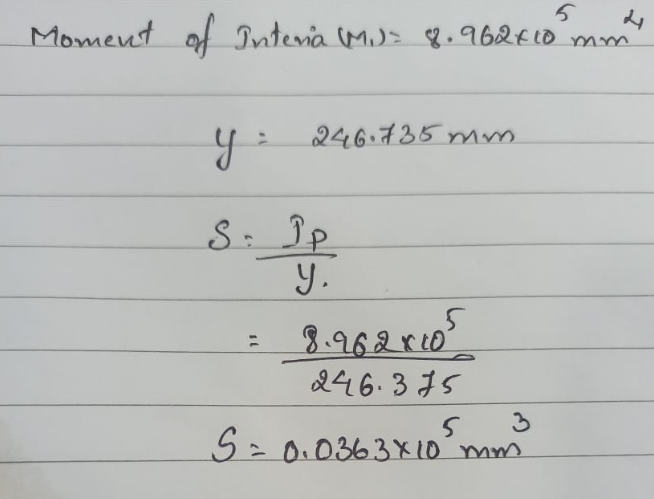 Moment of Interia (M.) = 8.962×10⁵ mm⁴
y = 246.735 mm
S = Ip
y.
= 8.962×10⁵
246.375
S = 0.0363×10⁵ mm³